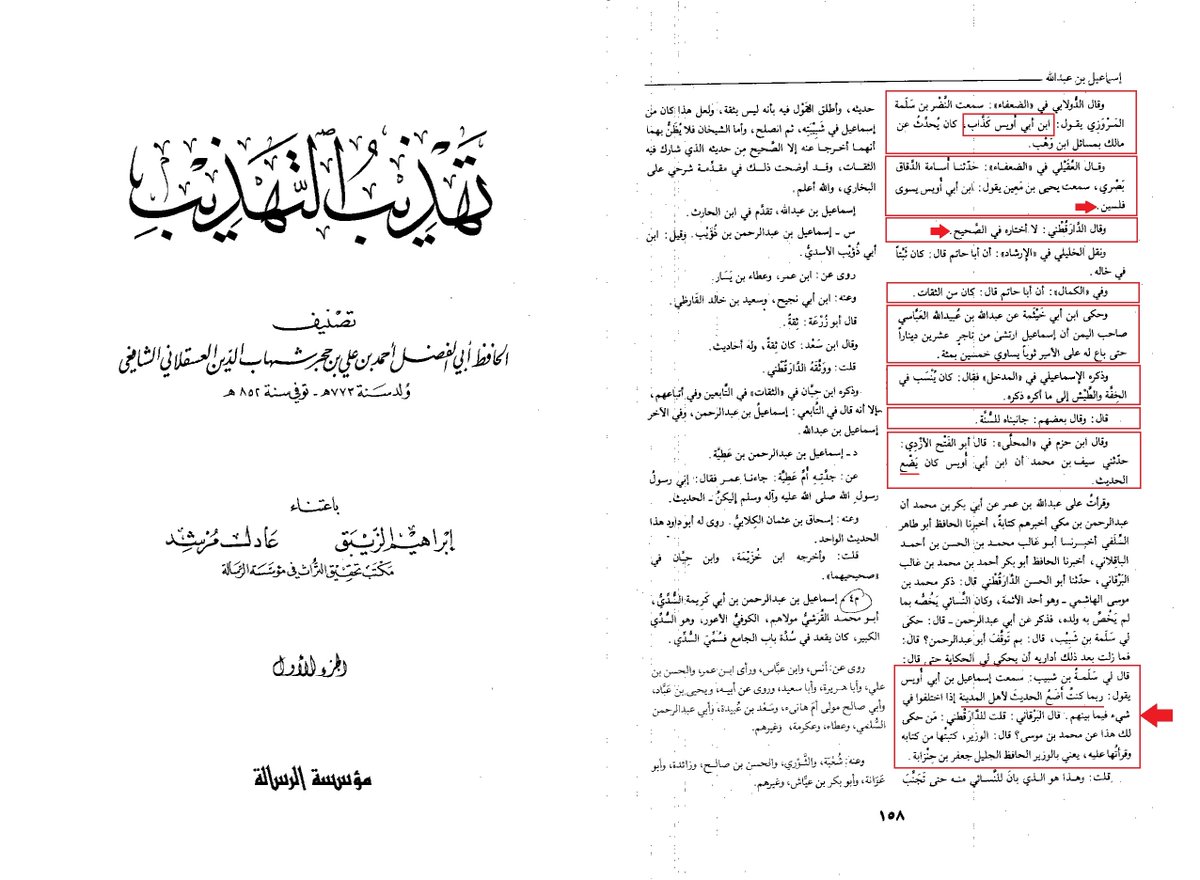 تهذيب التهذيب
تصنيف
الحافظ أبي الفضل أحمد بن علي بن حجر شهاب الدين العسقلاني الشافعي
ولد سنة ٧٧٣هـ - توفي سنة ٨٥٢ هـ
باعتناء
إبراهيم الزيبق عادل مرشد
مكتب تحقيق التراث في مؤسسة الرسالة
الجزء الأول
مؤسسة الرسالة
إسماعيل بن عبدالله
وقال الدُّولابي في «الضعفاء»: سمعت النَّضْر بن سَلَمة
المَرْوَزي يقول: ابن أبي أويس كَذَّاب، كان يُحدِّثُ عن
مالك بمسائل ابن وَهْب.
وقال العُقَيْلي في «الضعفاء»: حَدَّثنا أسامة الدَّقاق
بَصْري، سمعت يحيى بن مَعِين يقول: ابن أبي أُويس يسوى
فلسين.
وقال الدَّارقُطْني: لا أختاره في الصَّحيح.
ونقل الخليلي في «الإرشاد»: أن أبا حاتم قال: كان ثَبْتاً
في خاله.
وفي «الكمال»: أن أبا حاتم قال: كان من الثقات.
وحكى ابن أبي خَيْثمة عن عبدالله بن عُبيدالله العَبَّاسي
صاحب اليمن أن إسماعيل ارتشى من تاجرٍ عشرين ديناراً
حتى باع له على الأمير ثوباً يساوي خمسين بمئة.
وذكره الإسماعيلي في «المدخل» فقال: كان يُنْسَب في
الخِفَّة والطَّيْش إلى ما أكره ذكره.
قال: وقال بعضهم: جانبناه للسُّنَّة.
وقال ابن حزم في «المحلَّى»: قال أبو الفَتْح الأَزْدي:
حدَّثني سيف بن محمد أن ابن أبي أُويس كان يَضَع
الحديث.
وقرأتُ على عبدالله بن عمر عن أبي بكر بن محمد أن
عبدالرحمن بن مكي أخبرهم كتابةً، أخبرنا الحافظ أبو طاهر
السِّلَفي أخبرنا أبو غالب محمد بن الحسن بن أحمد
الباقِلاني، أخبرنا الحافظ أبو بكر أحمد بن محمد بن غالب
البَرْقاني، حدَّثنا أبو الحسن الدَّارَقُطْني قال: ذكر محمد بن
موسى الهاشمي ـ وهو أحد الأئمة، وكان النَّسائي يَخُصُّه بما
لم يَخُصَّ به ولده، فذكر عن أبي عبدالرحمن ـ قال: حكى
لي سَلَمة بن شَبيْب، قال: بم تَوقَّف أبو عبدالرحمن؟ قال:
فما زلت بعد ذلك أداريه أن يحكي لي الحكاية حتى قال:
قال لي سَلَمةُ بن شبيب: سمعت إسماعيل بن أبي أُويس
يقول: ربما كنتُ أَضَعُ الحديثَ لأهل المدينة إذا اختلفوا في
شيء فيما بينهم. قال البَرْقاني: قلت للدَّارَقُطْني: مَن حكى
لك هذا عن محمد بن موسى؟ قال: الوزير، كتبتُها من كتابه
وقرأتُها عليه، يعني بالوزير الحافظ الجليل جعفر بن حِنْزابة.
قلت: وهذا هو الذي بانَ للنَّسائي منه حتى تَجَنَّبَ
حديثه، وأطلق القول فيه بأنه ليس بثقة، ولعل هذا كان من
إسماعيل في شَبِيْبَتِه، ثم انصلح، وأما الشيخان فلا يُظَنُّ بهما
أنهما أخرجا عنه إلا الصَّحيح مِن حديثه الذي شارك فيه
الثقات، وقد أوضحت ذلك في مقدِّمة شرحي على
البخاري، والله أعلم.
إسماعيل بن عبدالله، تقدَّم في ابن الحارث.
س ـ إسماعيل بن عبدالرحمن بن ذُؤَيْب. وقيل: ابن
أبي ذُؤَيْب الأسديُّ.
روى عن: ابن عمر، وعطاء بن يَسَار.
وعنه: ابن أبي نجيح، وسعيد بن خالد القَارظي.
قال أبو زُرْعَة: ثِقةٌ.
وقال ابن سَعْد: كان ثِقةً، وله أحاديث.
قلت: ووثَّقَهُ الدَّارَقُطْني.
وذكره ابن حِبَّان في «الثقات» في التَّابعين وفي أتباعهم،
إلا أنه قال في التَّابعي: إسماعيلُ بن عبدالرحمن، وفي الآخر
إسماعيل بن عبدالله.
د ـ إسماعيل بن عبدالرحمن بن عَطِيَّة.
عن: جدَّتِهِ أُمِّ عَطِيَّة: جاءنا عمر فقال: إني رسولُ
رسولِ الله صلى الله عليه وآله وسلم إليكنَّ ـ الحديث.
وعنه: إسحاق بن عثمان الكِلابيُّ. روى له أبو داود هذا
الحديث الواحد.
قلت: وأخرجه ابن خُزَيْمَة، وابن حِبَّان في
«صحيحيهما».
م٤ ـ إسماعيل بن عبدالرحمن بن أبي كَرِيمة السُّدِّيُّ،
أبو محمد القُرَشيُّ مولاهم، الكوفيُّ الأعور، وهو السُّدِّي
الكبير، كان يقعد في سُدَّة باب الجامع فسُمِّيَ السُّدِّي.
روى عن: أنس، وابن عبَّاس، ورأى ابن عمر، والحسن بن
علي، وأبا هريرة، وأبا سعيد، وروى عن أبيه، ويحيى بن عَبَّاد،
وأبي صالح مولى أم هانىء، وسَعْد بن عُبيدة، وأبي عبدالرحمن
السُّلَمي، وعطاء، وعكرمة، وغيرهم.
وعنه: شُعْبَة، والثَّوْري، والحسن بن صالح، وزائدة، وأبو
عَوَانة، وأبو بكر بن عيَّاش، وغيرهم.
١٥٨